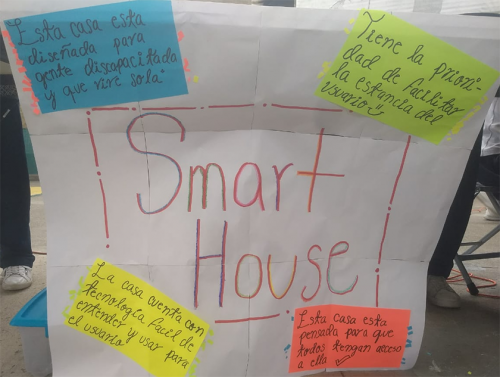 Esta casa esta
diseñada para
gente discapacitada
y que vive sola"
Tiene la priori-
dad de facilitar
la estancia del
usuario"
Smart
House
La casa cuenta con
tecnología facil de
entender y usar para
el usuario
Esta casa esta
pensada para que
todos tengan acceso
a ella